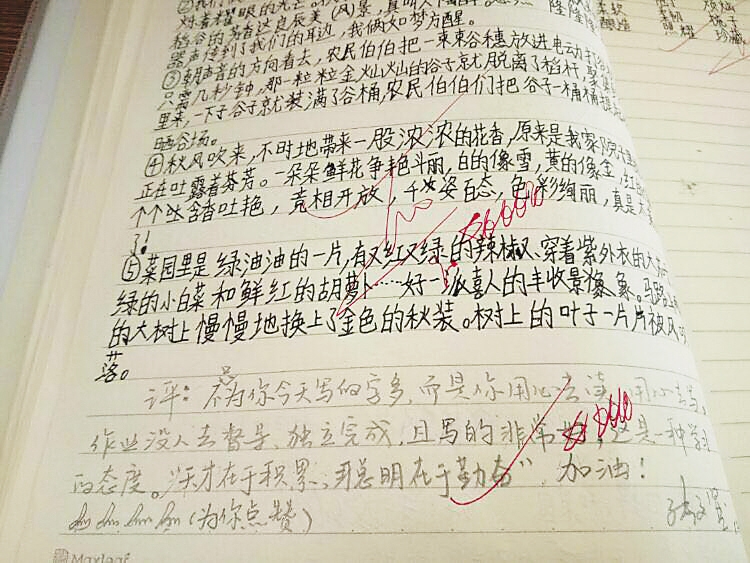 ②我们
对着耀眼的光芒
稻谷的
器声传到了我们的耳边,我俩如梦方醒。
③朝声音的方向看去,农民伯伯把一束束谷穗放进电动打
只需几秒钟,那一粒粒金灿灿的谷子就脱离了稻杆,
里来,一下子谷子就装满了谷桶,农民伯伯们把谷子一桶桶
晒谷场。
④秋风吹来,不时地带来一股浓浓的花香,原来是我家院子里
正在吐露着芬芳。一朵朵鲜花争艳斗丽,白的像雪,黄的像金,红
个个含香吐艳,竞相开放,千姿百态,色彩绚丽,真是
了!
⑤菜园里是绿油油的一片,有又红又绿的辣椒、穿着紫外衣的大
绿的小白菜和鲜红的胡萝卜……好一派喜人的丰收景象。马路
的大树上慢慢地换上了金色的秋装。树上的叶子一片片被风
落。
评:不为你今天写的字多,而是你用心去读,用心去写。
作业没人去督导、独立完成,且写的非常,这是一种学习
的态度。"天才在于积累,聪明在于勤奋",加油!
(为你点赞)
Maxleaf